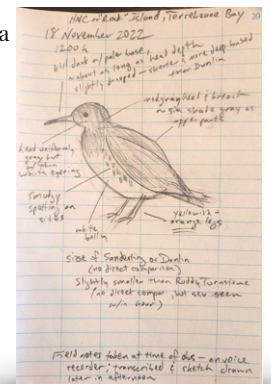 a
HNC "Rock" Island, Terrebonne Bay
20
18 November 2022
1200 h
bill dark w/ paler base,
~ about as long as head depth
slightly drooped - shorter & more
than Dunlin
med gray head & breast
~ sim shade gray as
upperparts
head uniformly
gray but
thin
white eyering
smudgy
spotting on
sides
white
belly
yellowish-
orange legs
size of Sanderling or Dunlin
(no direct comparison)
slightly smaller than Ruddy Turnstone
(no direct compar, but sev seen
w/in hour)
Field notes taken at time of obs - on voice
recorder; transcribed & sketch drawn
later in afternoon